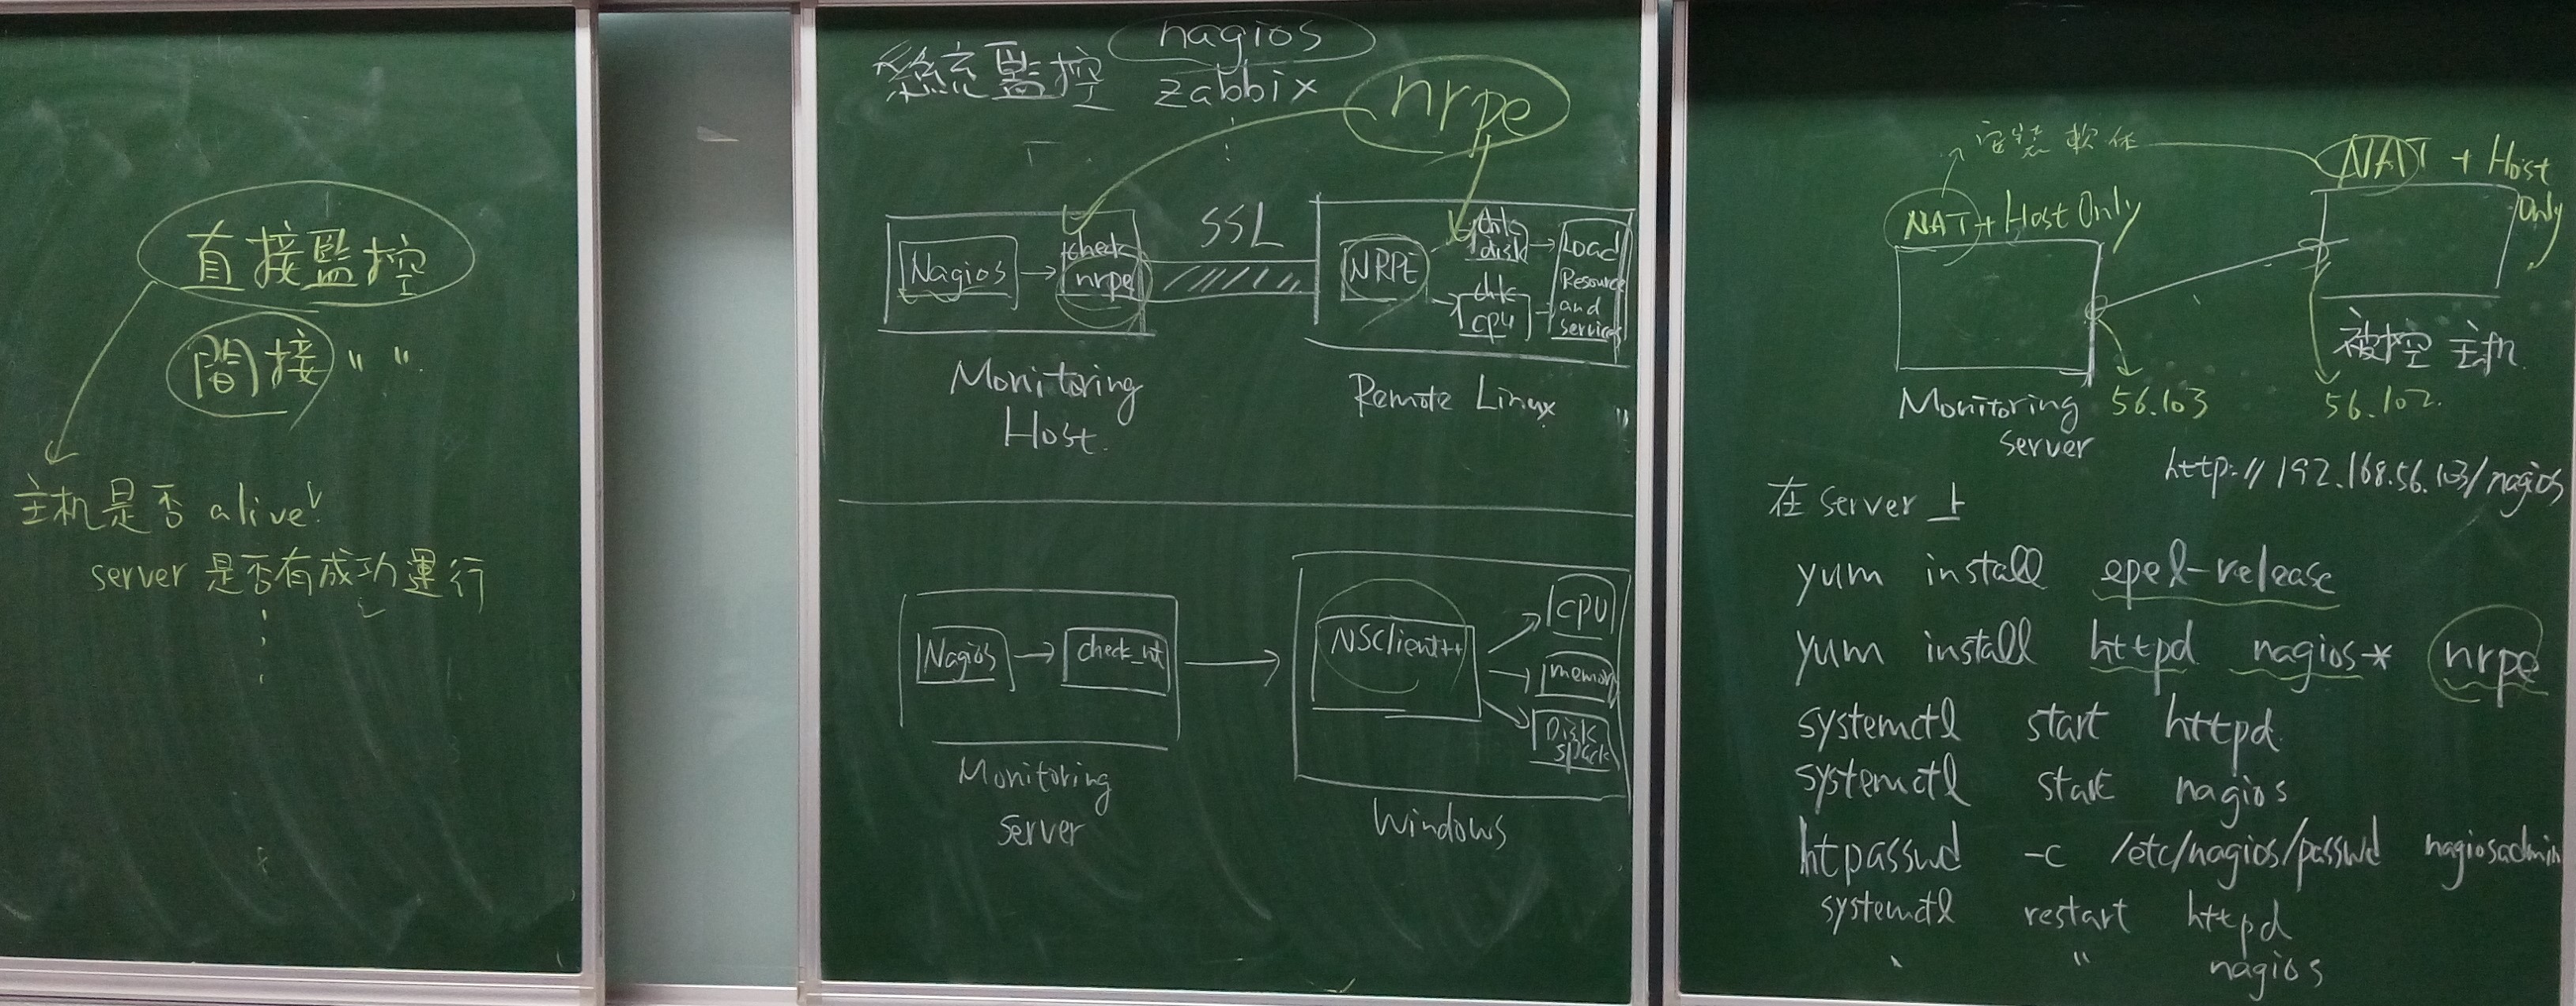 直接監控
間接 " "
主机是否 alive
server 是否有成功運行
系統監控 nagios
zabbix
nrpe
SSL
Nagios
check
nrpe
NRPE
chk
disk
chk
cpu
Load
Resource
and
services
Monitoring
Host
Remote Linux
Nagios
check_nt
NSClient++
CPU
memory
Disk
Monitoring
Server
Windows
安裝軟体
NAT + Host Only
NAT + Host
Only
被控主机
Monitoring
server
56.103
56.102
http://192.168.56.103/nagios
在 server 上
yum install epel-release
yum install httpd nagios* nrpe
systemctl start httpd
systemctl start nagios
htpasswd -c /etc/nagios/passwd nagiosadmin
systemctl restart httpd
" " nagios